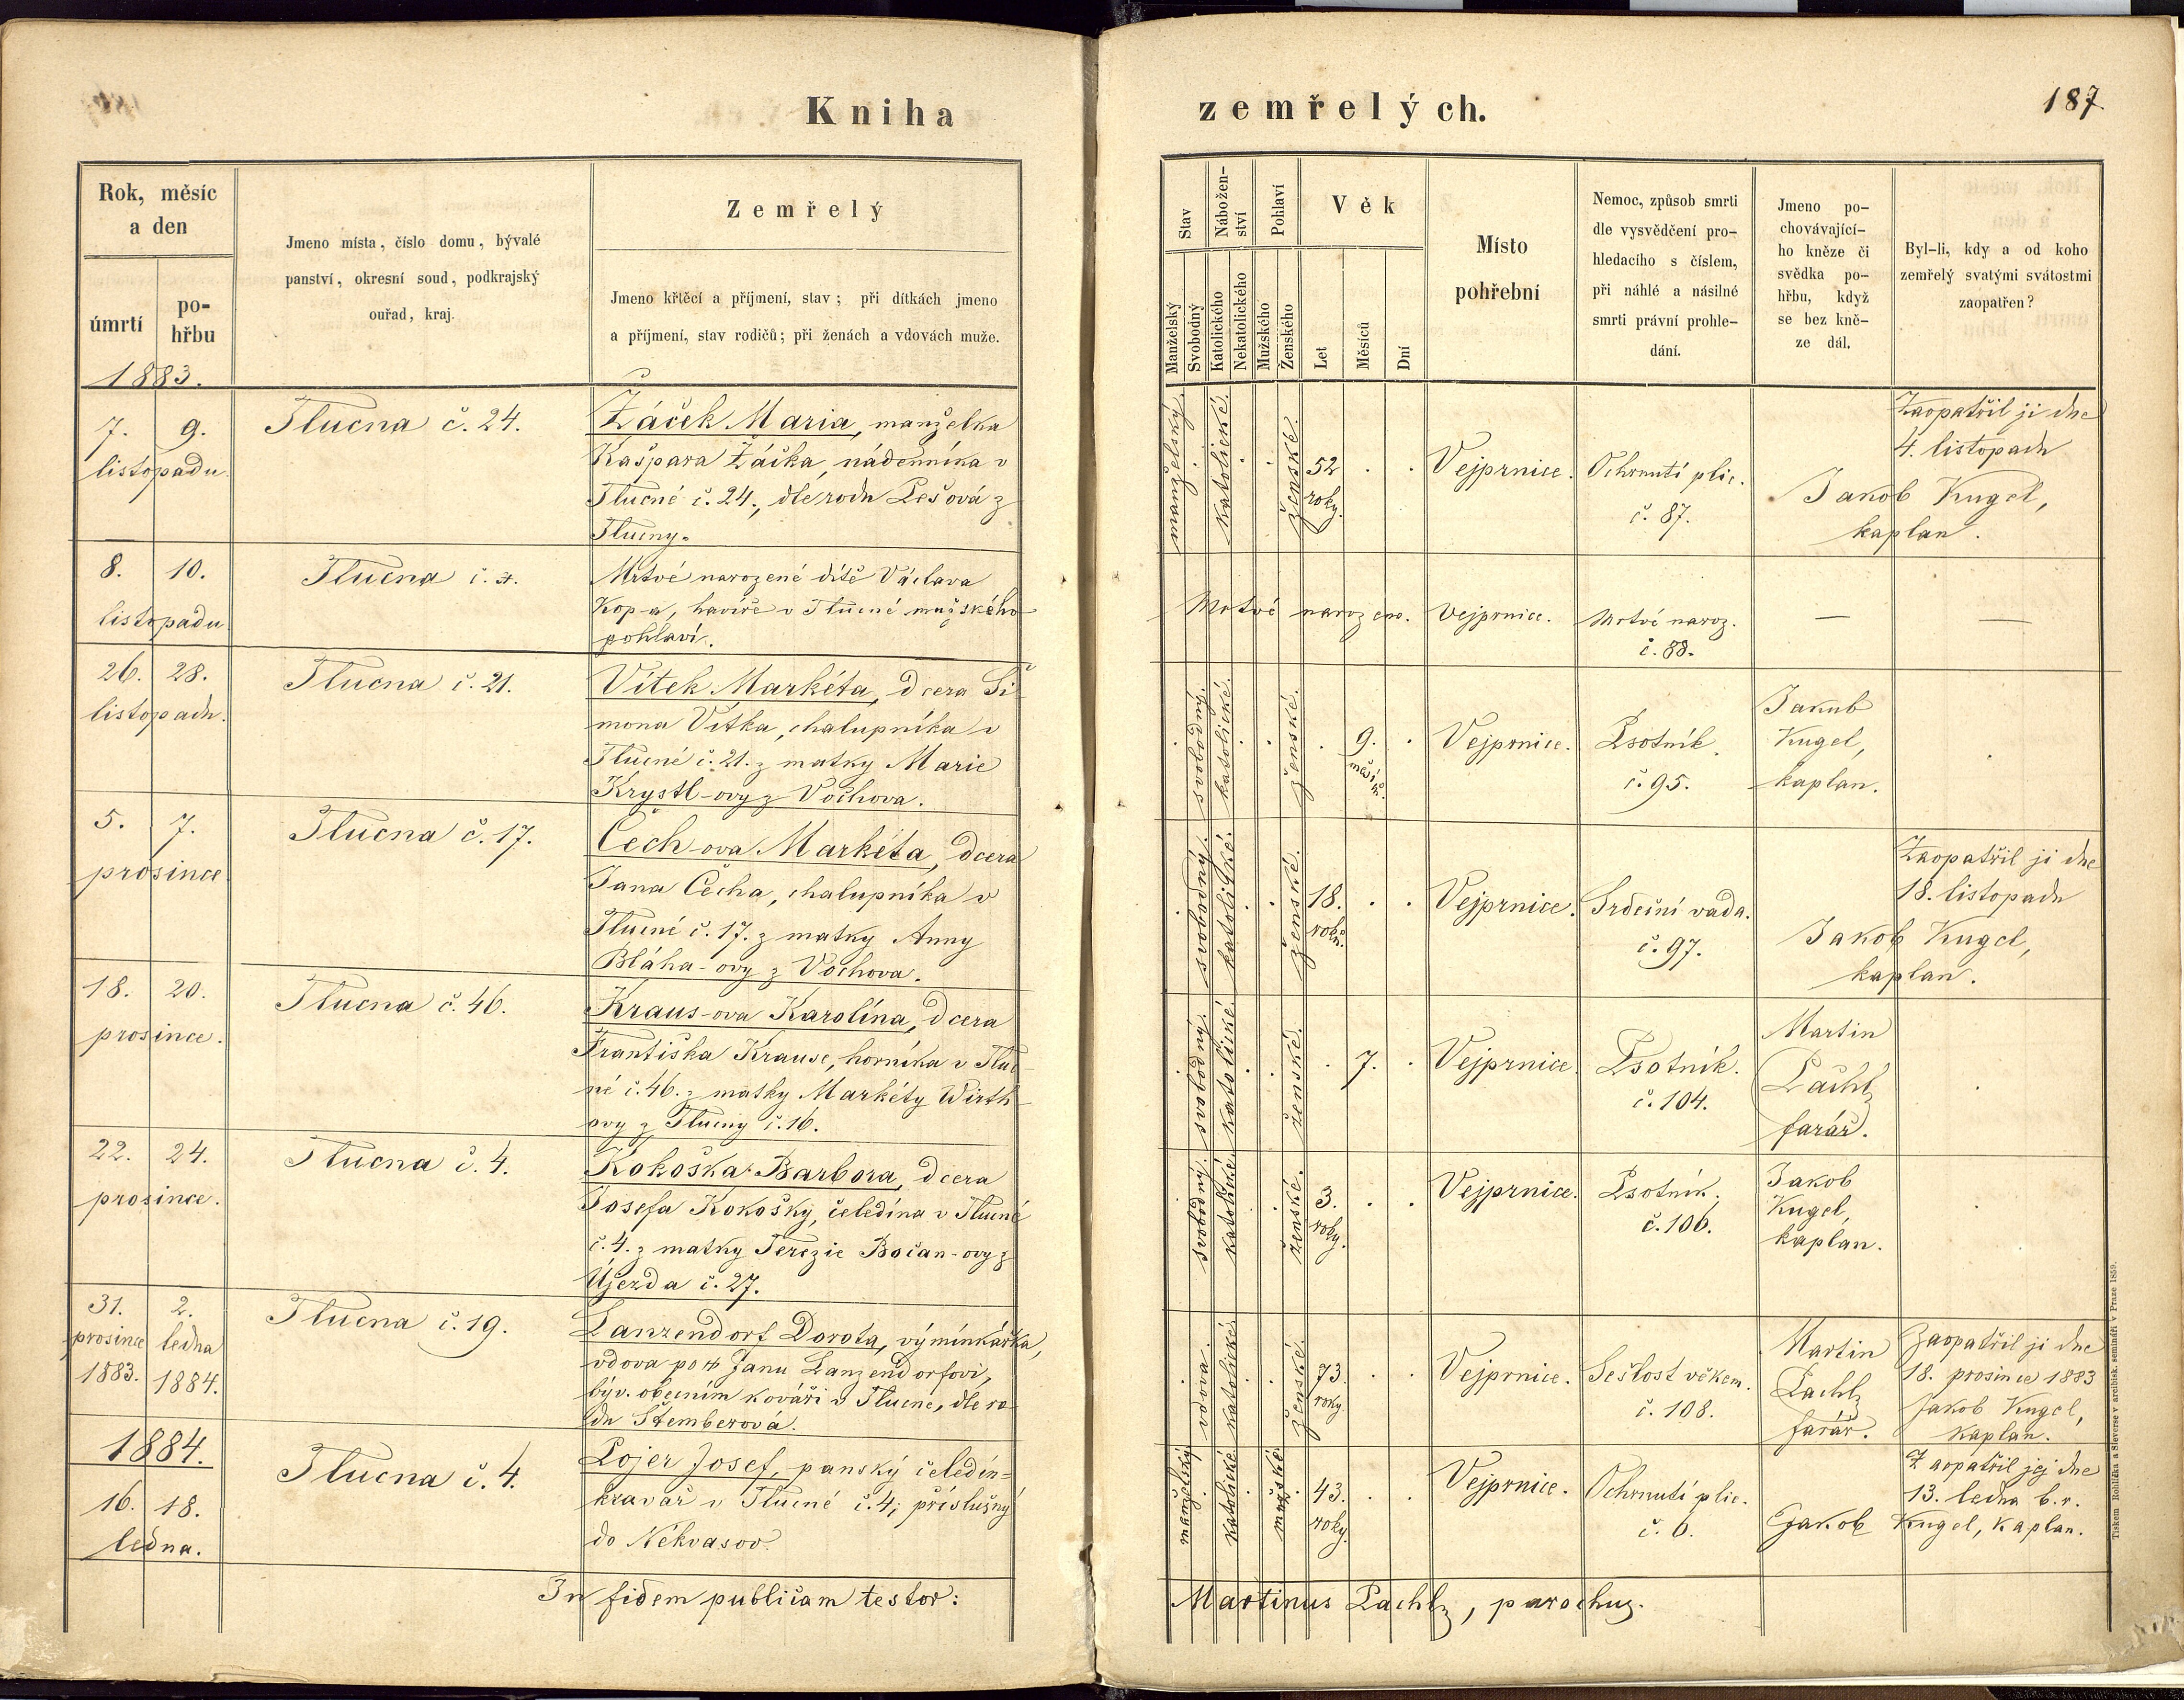 Kniha
zemřelých.
187
Rok, měsíc
a den
úmrtí
po-
hřbu
1883.
Jmeno místa, číslo domu, bývalé
panství, okresní soud, podkrajský
ouřad, kraj.
Zemřelý
Jmeno křtěcí a příjmení, stav; při dítkách jmeno
a příjmení, stav rodičů; při ženách a vdovách muže.
Stav
Nábožen-
ství
Pohlaví
Věk
Manželský
Svobodný
Katolického
Nekatolického
Mužského
Ženského
Let
Měsíců
Dní
Místo
pohřební
Nemoc, způsob smrti
dle vysvědčení pro-
hledacího s číslem,
při náhlé a násilné
smrti právní prohle-
dání.
Jmeno po-
chovávající-
ho kněze či
svědka po-
hřbu, když
se bez kně-
ze dál.
Byl-li, kdy a od koho
zemřelý svatými svátostmi
zaopatřen?
7. 9.
listopadu
Tlucna č. 24.
Žáček Maria, manželka
Kašpara Žáčka, nádenníka v
Tlucné č. 24., dle rodu Pešová z
Tlucny.
manželský.
katolické.
ženské.
52
roky.
Vejprnice.
Ochrnutí plic.
č. 87.
Zaopatřil ji dne
4. listopadu
Jakob Kugel,
kaplan.
8. 10.
listopadu
Tlucna č.
Mrtvé narozené dítě Václava
Kop-a, havíře v Tlucné mužského
pohlaví.
Mrtvé narozeno.
Vejprnice.
Mrtvé naroz.
č. 88.
—
—
26. 28.
listopadu.
Tlucna č. 21.
Vítek Markéta, dcera Ši
mona Vítka, chalupníka v
Tlucné č. 21. z matky Marie
Krystl-ovy z Vochova.
svobodný.
katolické.
ženské.
9.
měsíců.
Vejprnice.
Psotník.
č. 95.
Jakub
Kugel,
kaplan.
5. 7.
prosince
Tlucna č. 17.
Čech-ova Markéta, dcera
Jana Čecha, chalupníka v
Tlucné č. 17. z matky Anny
Bláha-ovy z Vochova.
svobodný.
katolické.
ženské.
18.
roků.
Vejprnice.
Srdeční vada.
č. 97.
Zaopatřil ji dne
18. listopadu
Jakob Kugel,
kaplan.
18. 20.
prosince.
Tlucna č. 46.
Kraus-ova Karolína, dcera
Františka Krause, horníka v Tluc
né č. 46. z matky Markéty Wirth
ovy z Tlucny č. 16.
svobodný.
katolické.
ženské.
7.
Vejprnice.
Psotník.
č. 104.
Martin
Pachl,
farář.
22. 24.
prosince.
Tlucna č. 4.
Kokoška Barbora, dcera
Josefa Kokošky, čeledína v Tlucné
č. 4. z matky Terezie Bočan-ovy z
Újezda č. 27.
svobodný.
katolické.
ženské.
3.
roky.
Vejprnice.
Psotník.
č. 106.
Jakob
Kugel,
kaplan.
31. 2.
prosince ledna
1883. 1884.
Tlucna č. 19.
Lanzendorf Dorota, výminkářka,
vdova po † Janu Lanzendorfovi,
býv. obecním kováři v Tlucné, dle ro
du Štemberová.
vdova.
katolické.
ženské.
73.
roky.
Vejprnice.
Sešlost věkem.
č. 108.
Martin
Pachl,
farář.
Zaopatřil ji dne
18. prosince 1883
Jakob Kugel,
kaplan.
1884.
16. 18.
ledna.
Tlucna č. 4.
Lojer Josef, panský čeledín-
kravař v Tlucné č. 4; příslušný
do Někvasov.
manželský.
katolické.
mužské.
43.
roky.
Vejprnice.
Ochrnutí plic.
č. 6.
Zaopatřil jej dne
13. ledna b. r.
Jakob Kugel, kaplan.
In fidem publicam testor:
Martinus Pachl, parochus.
Tiskem Rohlíčka a Sieverse v arcibisk. semináři v Praze 1859.